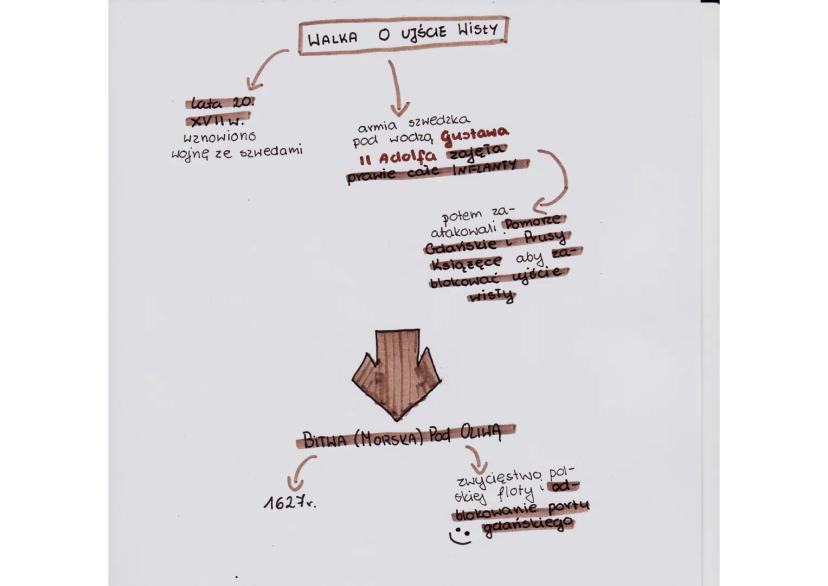 WALKA O UJŚCIE WISŁY
lata 20.
XVII w.
wznowiono
wojnę ze szwedami
armia szwedzka
pod wodzą Gustawa
II Adolfa zajęła
prawie całe INFLANTY
potem za-
atakowali Pomorze
Gdańskie i Prusy
Książęce aby za-
blokować ujście
wisły
BITWA (MORSKA) Pod OLIWĄ
1627r.
zwycięstwo pol-
skiej floty i od-
blokowanie portu
gdańskiego